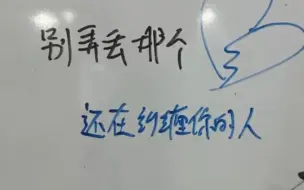 别弄丢那个
还在纠缠你的人